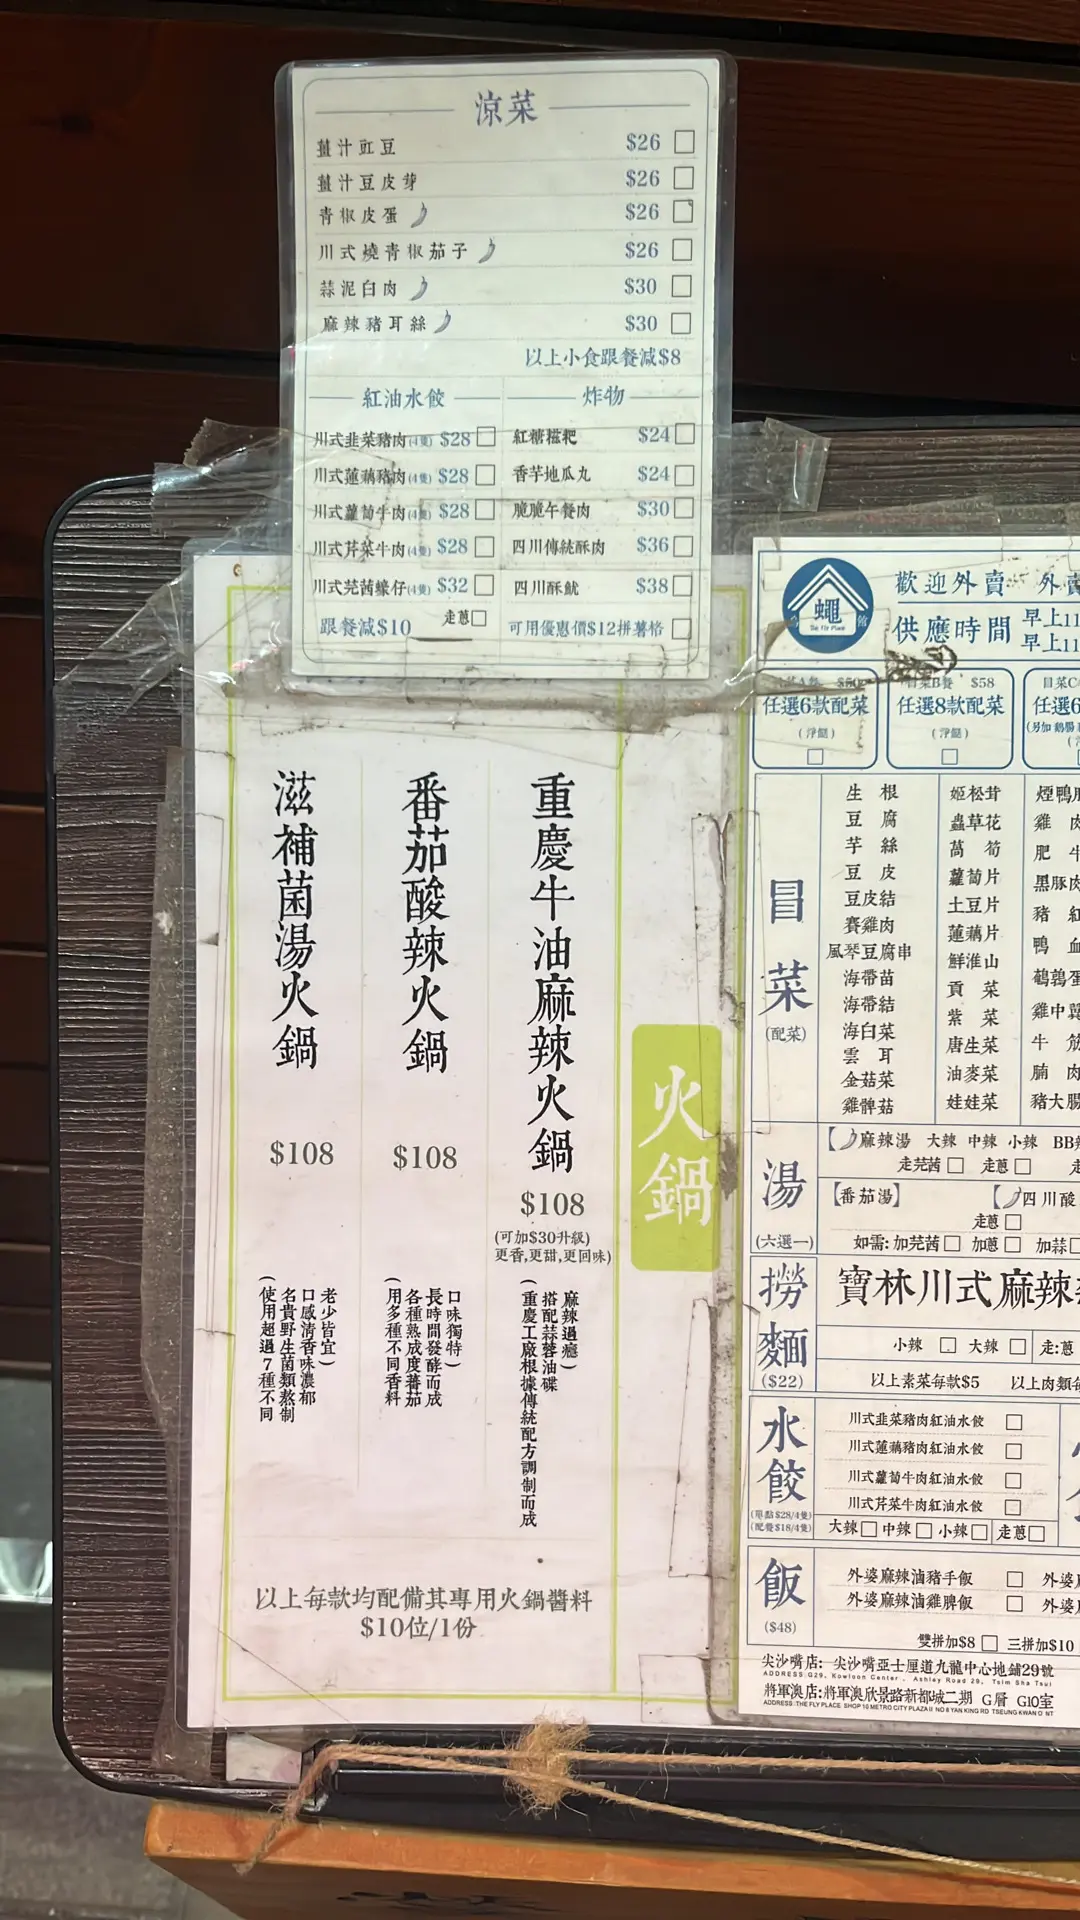 涼菜
薑汁豇豆 $26
薑汁豆皮芽 $26
青椒皮蛋 $26
川式燒青椒茄子 $26
蒜泥白肉 $30
麻辣豬耳絲 $30
以上小食跟餐減$8
紅油水餃
川式韭菜豬肉(4隻) $28
川式蓮藕豬肉(4隻) $28
川式蘿蔔牛肉(4隻) $28
川式芹菜牛肉(4隻) $28
川式芫茜蠔仔(4隻) $32
走蔥
跟餐減$10
炸物
紅糖糍粑 $24
香芋地瓜丸 $24
脆脆午餐肉 $30
四川傳統酥肉 $36
四川酥魷 $38
可用優惠價$12拼薯格
火鍋
重慶牛油麻辣火鍋
$108
(可加$30升級)
更香,更甜,更回味)
(重慶工廠根據傳統配方調制而成
搭配蒜蓉油碟
麻辣過癮)
番茄酸辣火鍋
$108
(用多種不同香料
各種熟成度蕃茄
長時間發酵而成
口味獨特)
滋補菌湯火鍋
$108
(使用超過7種不同
名貴野生菌類熬制
口感清香味濃郁
老少皆宜)
以上每款均配備其專用火鍋醬料
$10位/1份
蠅
The Fly Place
歡迎外賣 外賣
供應時間
早上11
早上11
$50
任選6款配菜
(淨餸)
冒菜B餐 $58
任選8款配菜
(淨餸)
冒菜C
任選6
冒菜
(配菜)
生根
豆腐
芋絲
豆皮
豆皮結
賽雞肉
風琴豆腐串
海帶苗
海帶結
海白菜
雲耳
金菇菜
雞髀菇
姬松茸
蟲草花
萵筍
蘿蔔片
土豆片
蓮藕片
鮮淮山
貢菜
紫菜
唐生菜
油麥菜
娃娃菜
煙鴨
雞肉
肥牛
黑豚肉
豬紅
鴨血
鵪鶉蛋
雞中翼
牛筋
腩肉
豬大腸
湯
(六選一)
【麻辣湯 大辣 中辣 小辣 BB
走芫茜 走蔥 走
【番茄湯】 【四川酸
走蔥
如需: 加芫茜 加蔥 加蒜
撈麵
($22)
寶林川式麻辣
小辣 大辣 走:蔥
以上素菜每款$5 以上肉類每
水餃
(單點$28/4隻)
(配餐$18/4隻)
川式韭菜豬肉紅油水餃
川式蓮藕豬肉紅油水餃
川式蘿蔔牛肉紅油水餃
川式芹菜牛肉紅油水餃
大辣 中辣 小辣 走蔥
飯
($48)
外婆麻辣滷豬手飯 外婆
外婆麻辣滷雞髀飯 外婆
雙拼加$8 三拼加$10
尖沙嘴店: 尖沙嘴亞士厘道九龍中心地鋪29號
ADDRESS:G29, Kowloon Center, Ashley Road 29, Tsim Sha Tsui
將軍澳店:將軍澳欣景路新都城二期 G層 G10室
ADDRESS:THE FLY PLACE SHOP 10 METRO CITY PLAZA II NO 8 YAN KING RD TSEUNG KWAN O NT